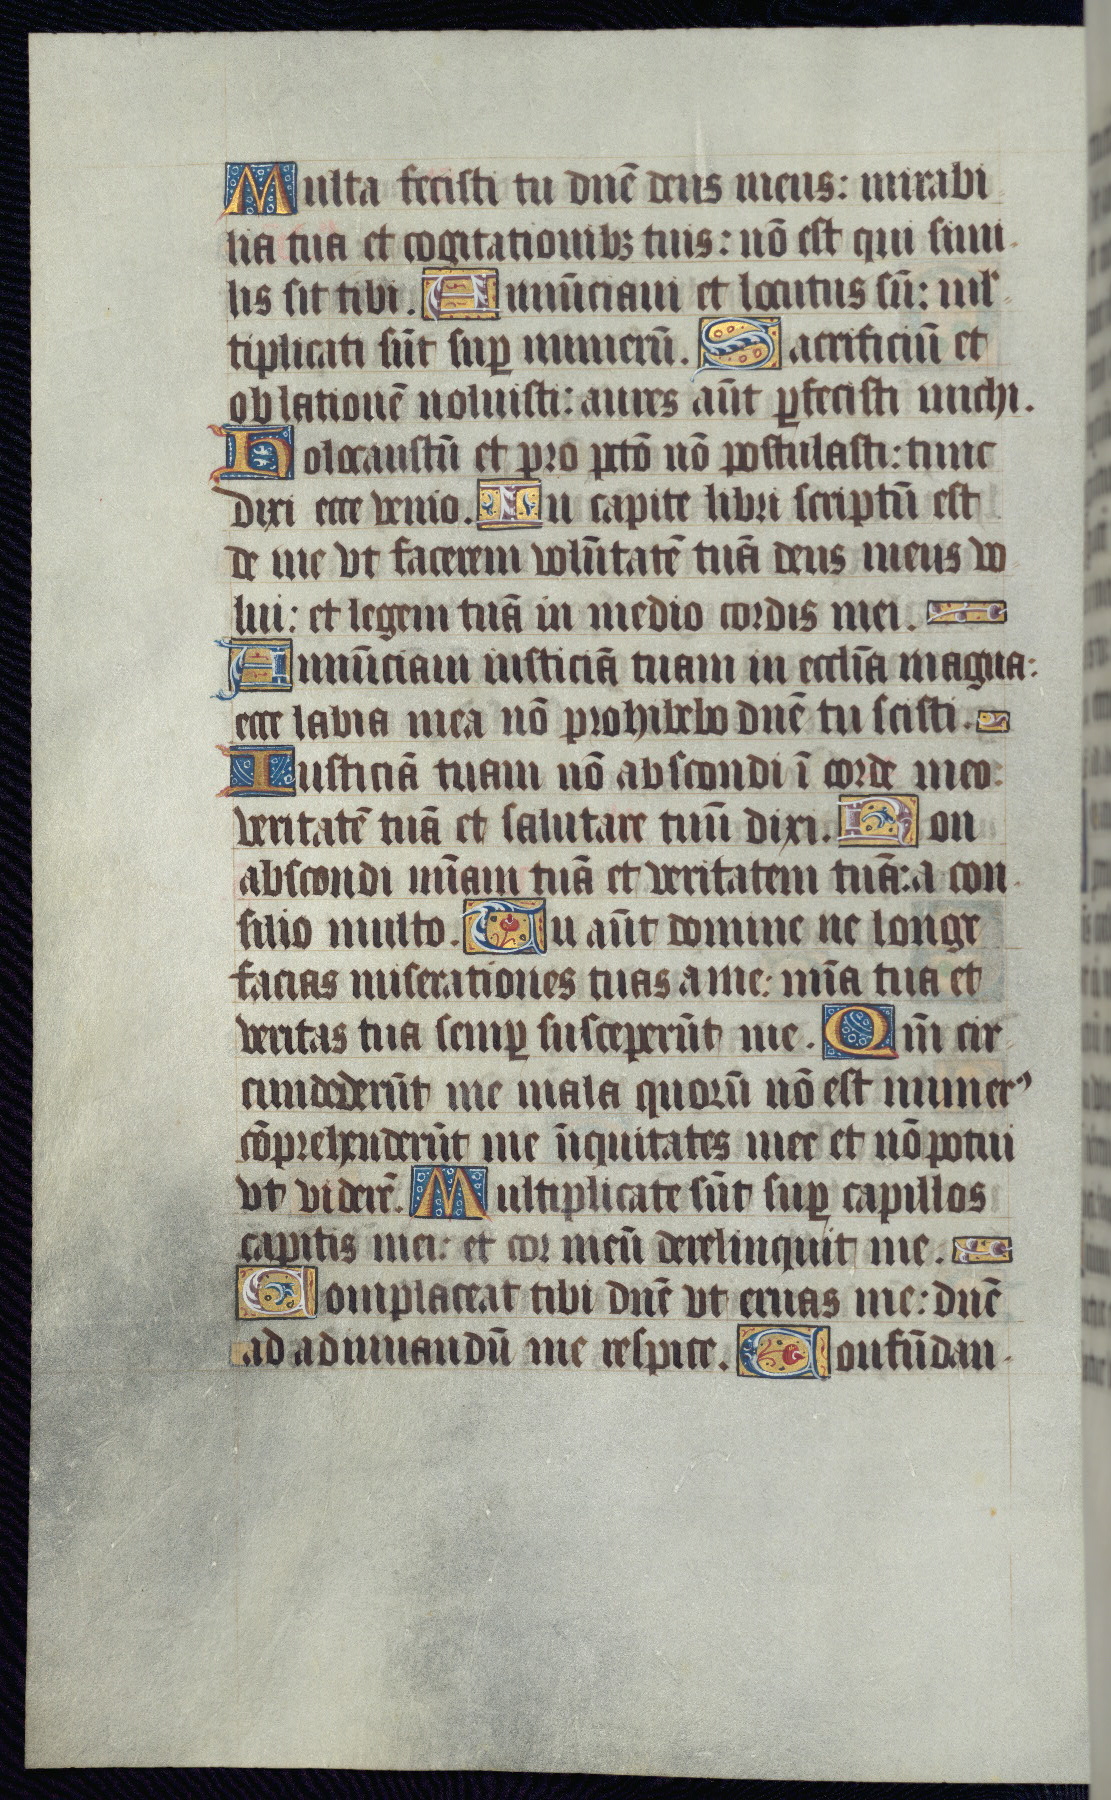 Multa fecisti tu dnē deus meus: mirabi
lia tua et cogitationibꝫ tuis: nō est qui simi
lis sit tibi. Annūciaui et locutus sū: ml̕
tiplicati sūt suꝑ numerū. Sacrificiū et
oblationē noluisti: aures aūt ꝑfecisti michi.
Holocaustū et pro pctō nō postulasti: tunc
dixi ecce venio. In capite libri scriptū est
de me vt facerem volūtatē tuā deus meus vo
lui: et legem tuā in medio cordis mei.
Annūciaui iusticiā tuam in eccl̄ia magna:
ecce labia mea nō prohibebo dnē tu scisti.
Iusticiā tuam nō abscondi ī corde meo:
veritatē tuā et salutare tuū dixi. Non
abscondi mīam tuā et veritatem tuā: a con
silio multo. Tu aūt domine ne longe
facias miserationes tuas a me: mīa tua et
veritas tua semꝑ susceperūt me. Qm̄ cir
cumdederūt me mala quorū nō est numerꝰ
cōprehenderūt me īiquitates mee et nō potui
vt viderē. Multiplicate sūt suꝑ capillos
capitis mei: et cor meū derelinquit me.
Complaceat tibi dnē vt eruas me: dnē
ad adiuuandū me respice. Confūdan